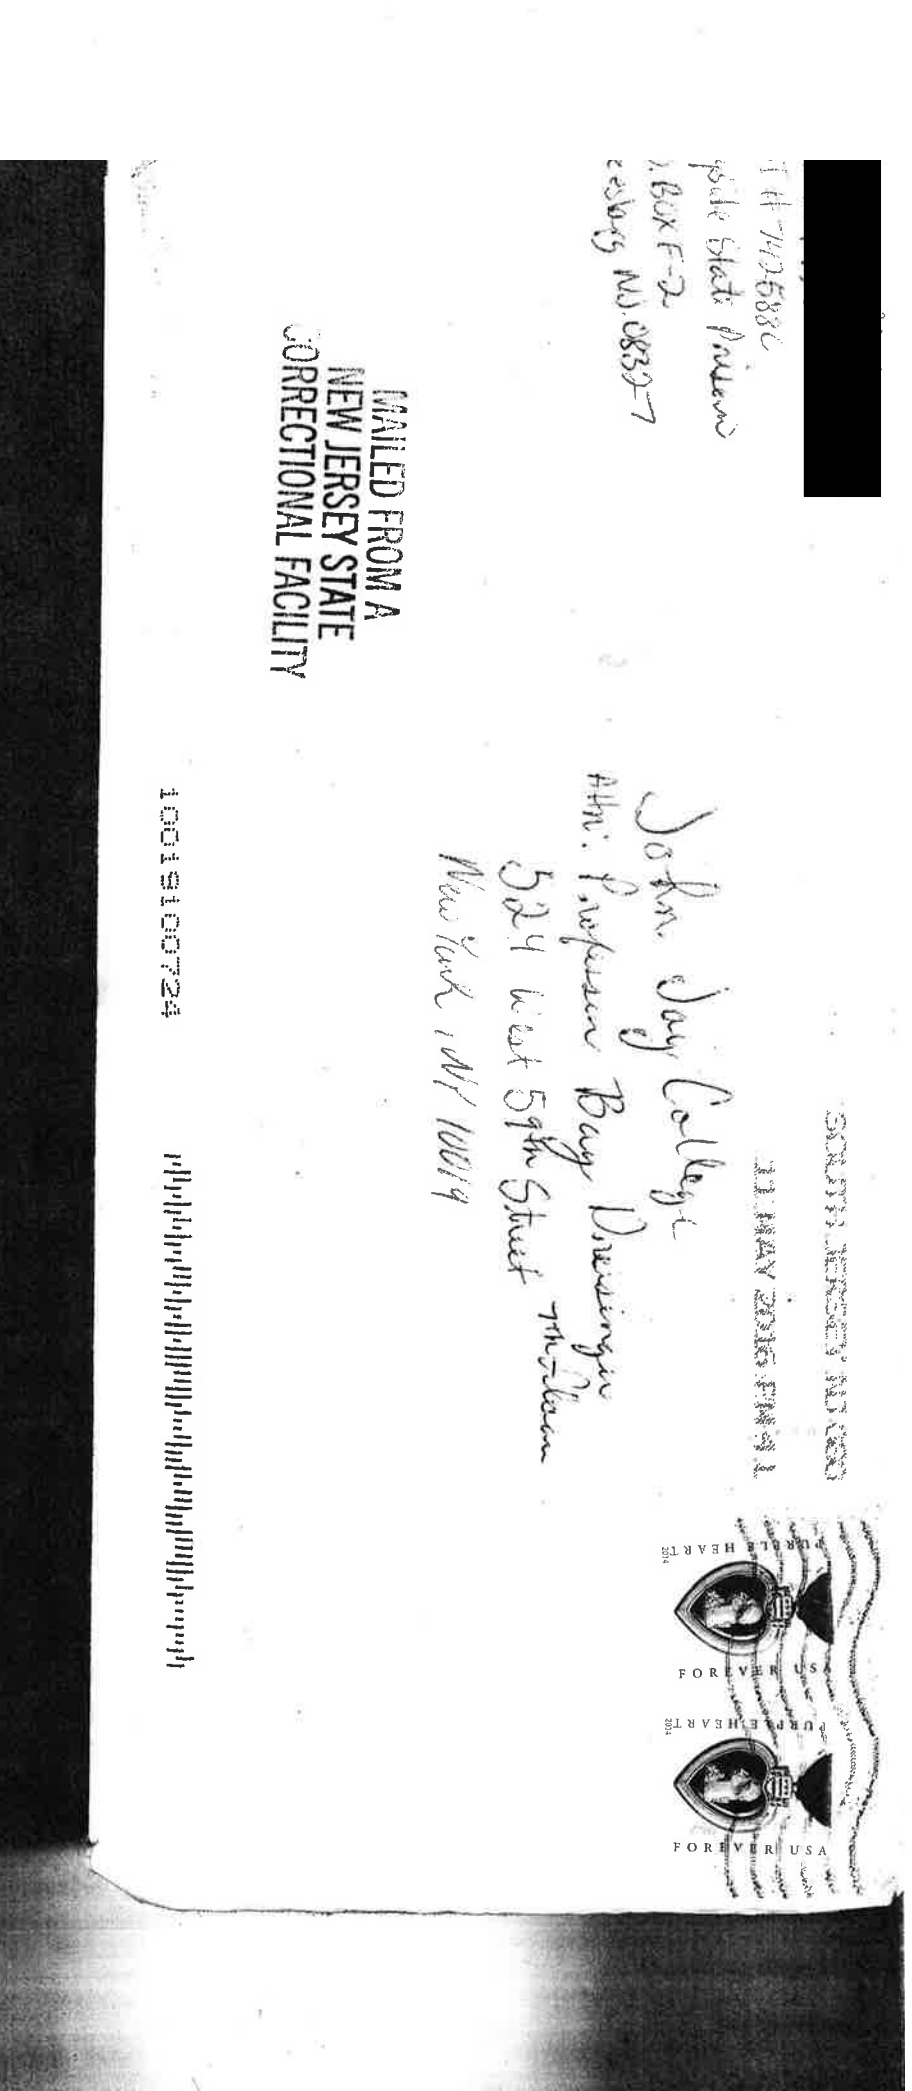 State Prison
. Box F-2
eesburg NJ. 08327
SOUTH JERSEY NJ 080
11 MAY 2016 PM 4 L
PURPLE HEART
2014
FOREVER USA
PURPLE HEART
2014
FOREVER USA
John Jay College
Attn: Professor Bay Dreisinger
524 West 59th Street 7th Floor
New York, NY 10019
MAILED FROM A
NEW JERSEY STATE
CORRECTIONAL FACILITY
10019100724